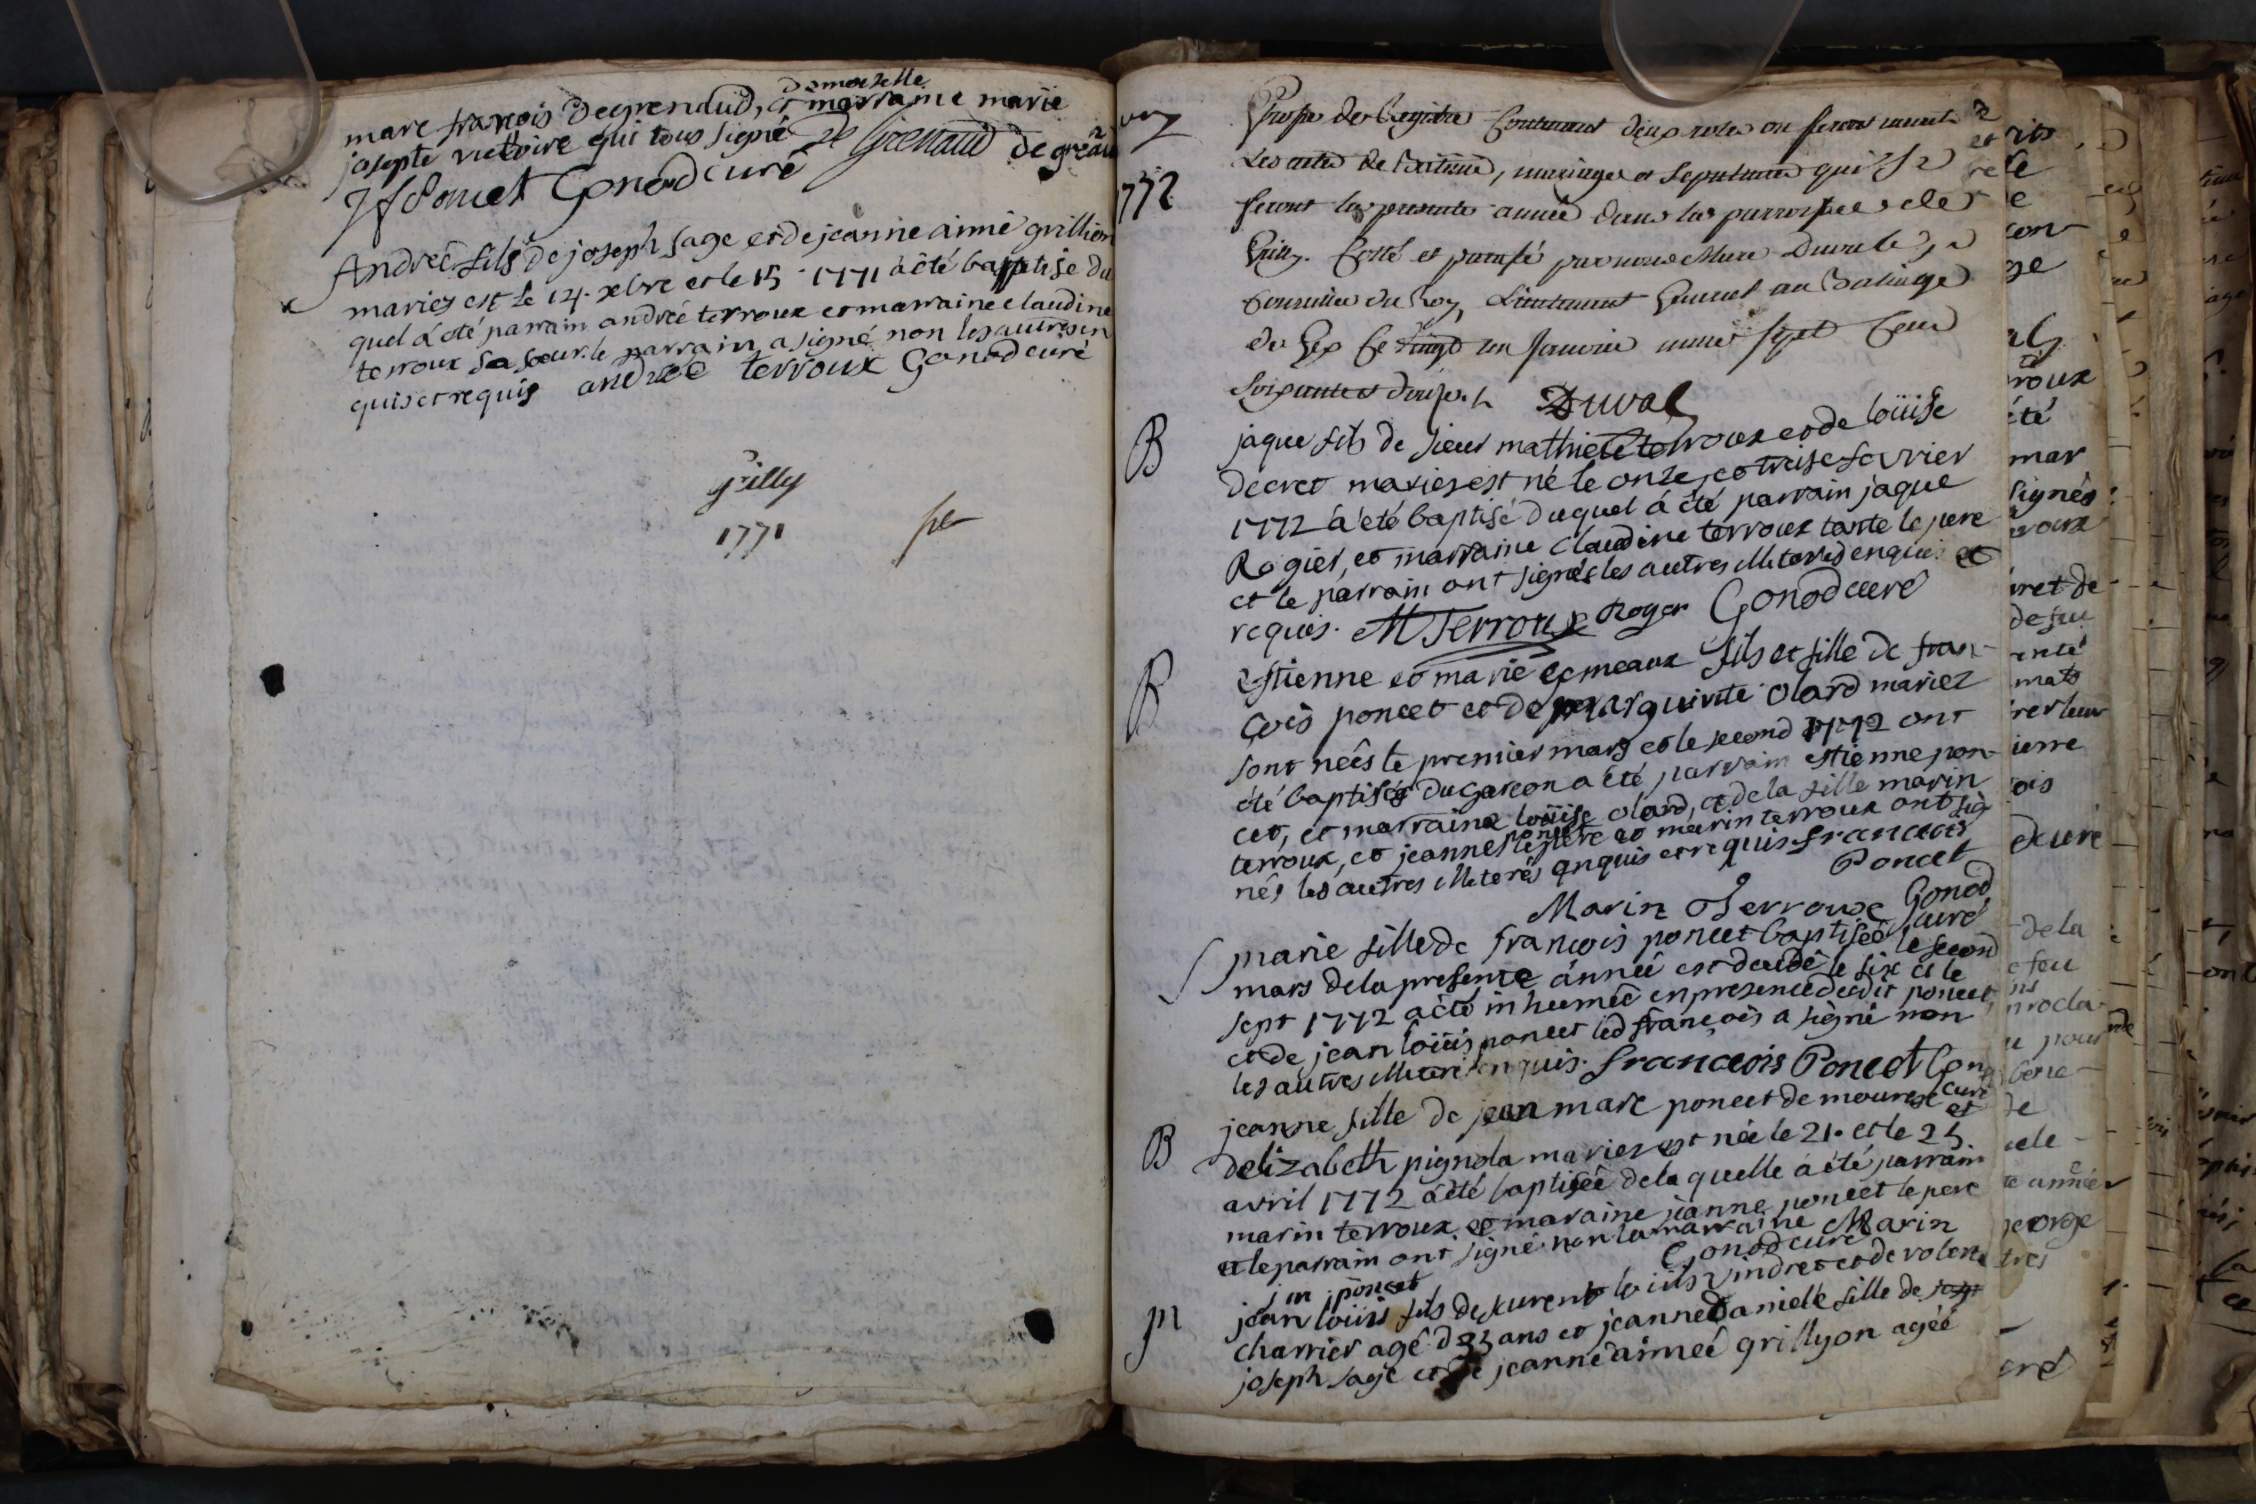 demoiselle
marc francois Degrenaud, et marraine marie
josepte victoire qui tous signé De Grenaud de grena
Jf Poncet Gonod curé
x Andreé fils de joseph sage et de jeanne aimé grillion
mariez est le 14. xbre et le 15 1771 a été baptisé du
quel a été parrain andreé terroux et marraine claudine
terroux sa soeur. le parrain a signé non les autres en
quis et requis andree terroux Gonod curé
Grilly
1771
1772
Present Registre Contenant deux roles ou seront
Les actes de Batême, mariages et Sepultures qui se
feront la presente année dans la parroisse de
Grilly. Cotté et parafé par nous Duval
Conseiller du Roy, Lieutenant General au Bailiage
de Gex Ce vingt un Janvier mille sept Cent
soixante et douze. Duval
B jaque fils de sieur mathieu terroux et de loüise
decret mariez est né le onze, et treise fevrier
1772 a été baptisé duquel a été parrain jaque
Rogier, et marraine claudine terroux tante le pere
et le parrain ont signés les autres illiterés enquis et
requis. M Terroux Roger Gonod curé
B Estienne et marie gemeaux fils et fille de fran
çois poncet et de marguirite olard mariez
sont nés le premier mars et le second 1772 ont
été baptisés du garcon a été parrain estienne pon
cet, et marraine loüise olard, et de la fille marin
terroux, et jeanne poncet le pere et marin terroux ont sig
nés les autres illiterés enquis et requis. francois
Poncet
Marin Terroux Gonod
curé
S marie fille de francois poncet baptisée le second
mars de la presente année est decedé le six et le
sept 1772 a été inhumée en presence dudit poncet
et de jean loüis poncet led françois a signé non
les autres illiteré enquis. francois Poncet Gon
curé
B jeanne fille de jean marc poncet de mourex et
delizabeth pignola mariez est née le 21. et le 25
avril 1772 a été baptisée de la quelle a été parrain
marin terroux et maraine jeanne poncet le pere
et le parrain ont signé non la marraine Marin
j m poncet Gonod curé
m jean loüis fils de laurent loüis vindret et de
charrier agé d 33 ans et jeanne daniele fille de
joseph sage et de jeanne aimeé grillyon agée